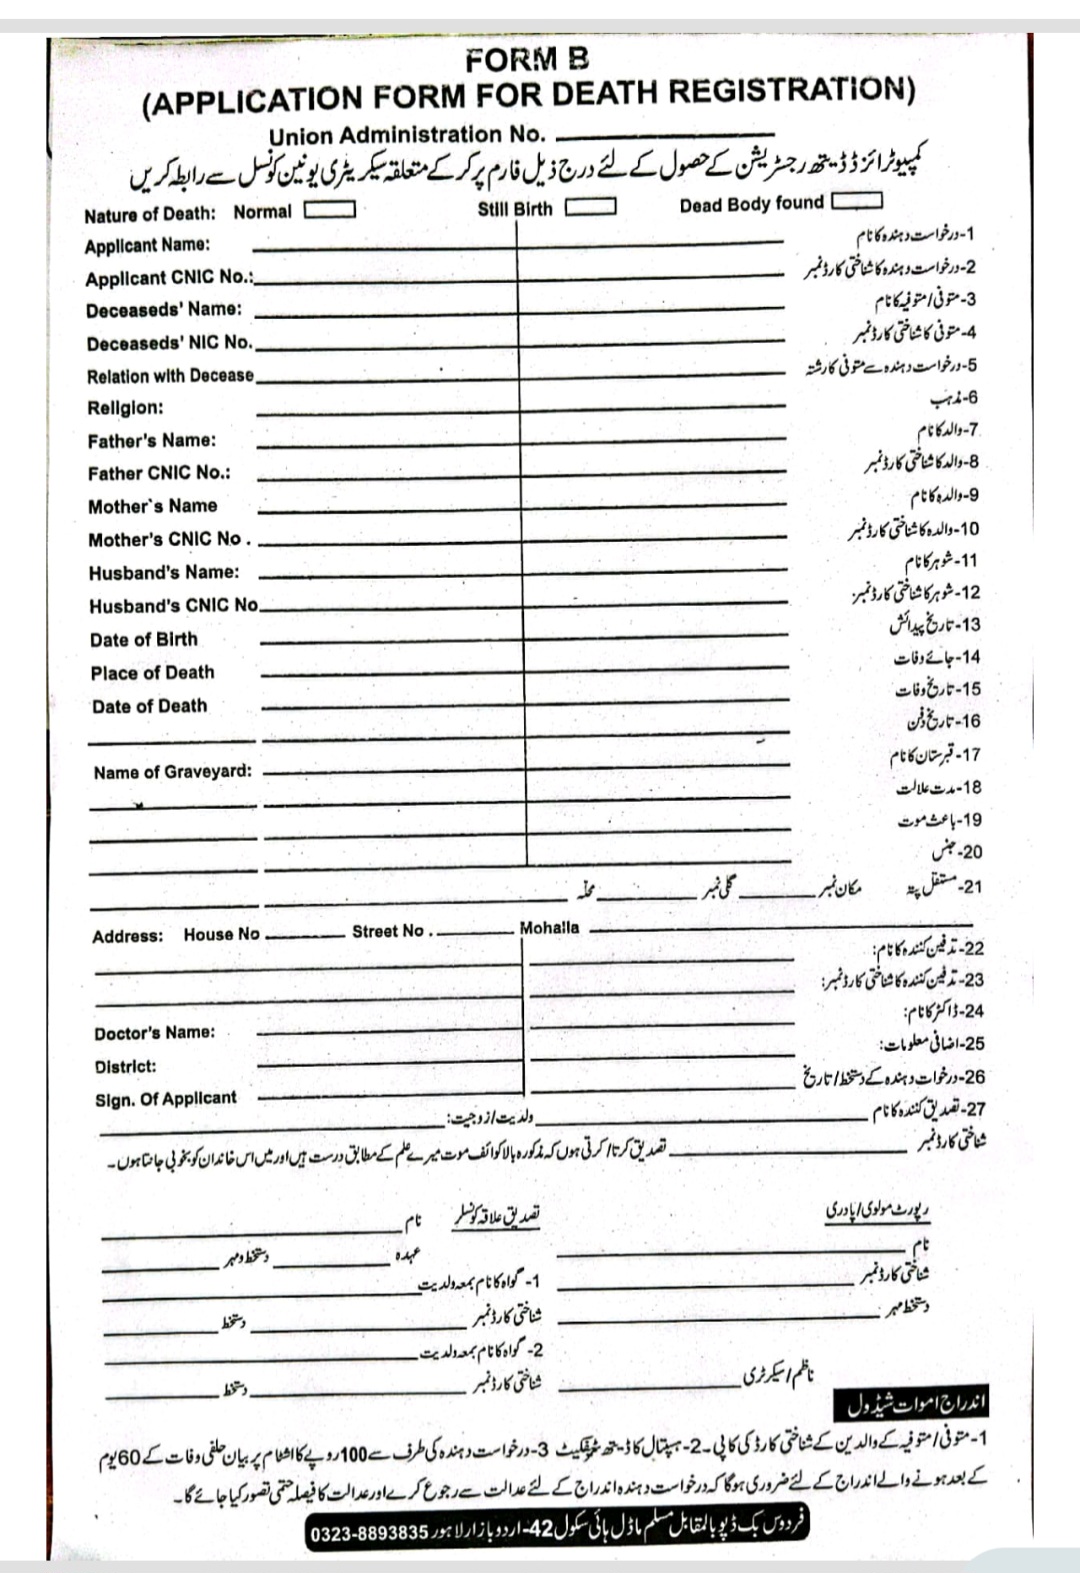 FORM B
(APPLICATION FORM FOR DEATH REGISTRATION)
Union Administration No.
کمپیوٹرائزڈ ڈیتھ رجسٹریشن کے حصول کے لئے درج ذیل فارم پر کر کے متعلقہ سیکریٹری یونین کونسل سے رابطہ کریں
Nature of Death: Normal Still Birth Dead Body found
Applicant Name: 1-درخواست دہندہ کا نام
Applicant CNIC No.: 2-درخواست دہندہ کا شناختی کارڈ نمبر
Deceaseds' Name: 3-متوفی/متوفیہ کا نام
Deceaseds' NIC No. 4-متوفی کا شناختی کارڈ نمبر
Relation with Decease 5-درخواست دہندہ سے متوفی کا رشتہ
Religion: 6-مذہب
Father's Name: 7-والد کا نام
Father CNIC No.: 8-والد کا شناختی کارڈ نمبر
Mother`s Name 9-والدہ کا نام
Mother's CNIC No . 10-والدہ کا شناختی کارڈ نمبر
Husband's Name: 11-شوہر کا نام
Husband's CNIC No 12-شوہر کا شناختی کارڈ نمبر
Date of Birth 13-تاریخ پیدائش
Place of Death 14-جائے وفات
Date of Death 15-تاریخ وفات
16-تاریخ دفن
Name of Graveyard: 17-قبرستان کا نام
18-مدت علالت
19-باعث موت
20-جنس
21-مستقل پتہ مکان نمبر گلی نمبر محلہ
Address: House No Street No . Mohalla
22-تدفین کنندہ کا نام:
23-تدفین کنندہ کا شناختی کارڈ نمبر:
Doctor's Name: 24-ڈاکٹر کا نام:
District: 25-اضافی معلومات:
Sign. Of Applicant 26-درخوات دہندہ کے دستخط/تاریخ
27-تصدیق کنندہ کا نام ولدیت/زوجیت:
شناختی کارڈ نمبر تصدیق کرتا/کرتی ہوں کہ مذکورہ بالا کوائف موت میرے علم کے مطابق درست ہیں اور میں اس خاندان کو بخوبی جانتا ہوں۔
رپورٹ مولوی/پادری تصدیق علاقہ کونسلر نام
نام عہدہ دستخط ومہر
شناختی کارڈ نمبر 1- گواہ کا نام بمعہ ولدیت
دستخط مہر شناختی کارڈ نمبر دستخط
2- گواہ کا نام بمعہ ولدیت
ناظم/سیکرٹری شناختی کارڈ نمبر دستخط
اندراج اموات شیڈول
1-متوفی/متوفیہ کے والدین کے شناختی کارڈ کی کاپی۔2-ہسپتال کا ڈیتھ سرٹیفکیٹ 3-درخواست دہندہ کی طرف سے 100 روپے کا اشٹام پر بیان حلفی وفات کے 60 یوم
کے بعد ہونے والے اندراج کے لئے ضروری ہوگا کہ درخواست دہندہ اندراج کے لئے عدالت سے رجوع کرے اور عدالت کا فیصلہ حتمی تصور کیا جائے گا۔
فردوس بک ڈپو بالمقابل مسلم ماڈل ہائی سکول 42-اردو بازار لاہور 0323-8893835